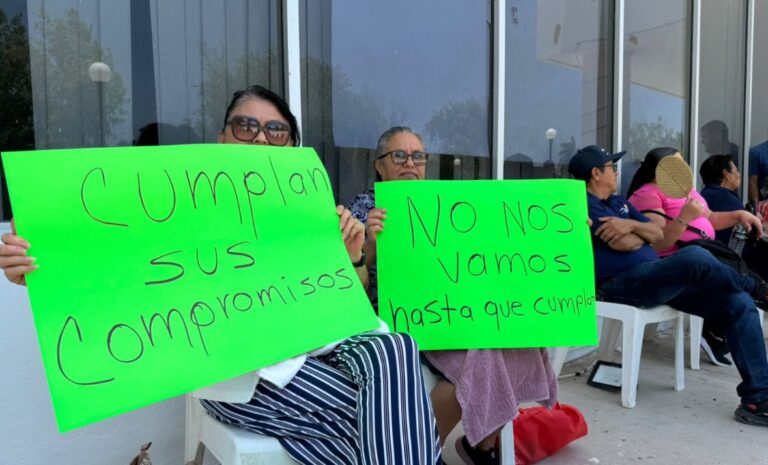 Cumplan
sus
Compromisos
No Nos
vamos
hasta que cumplan